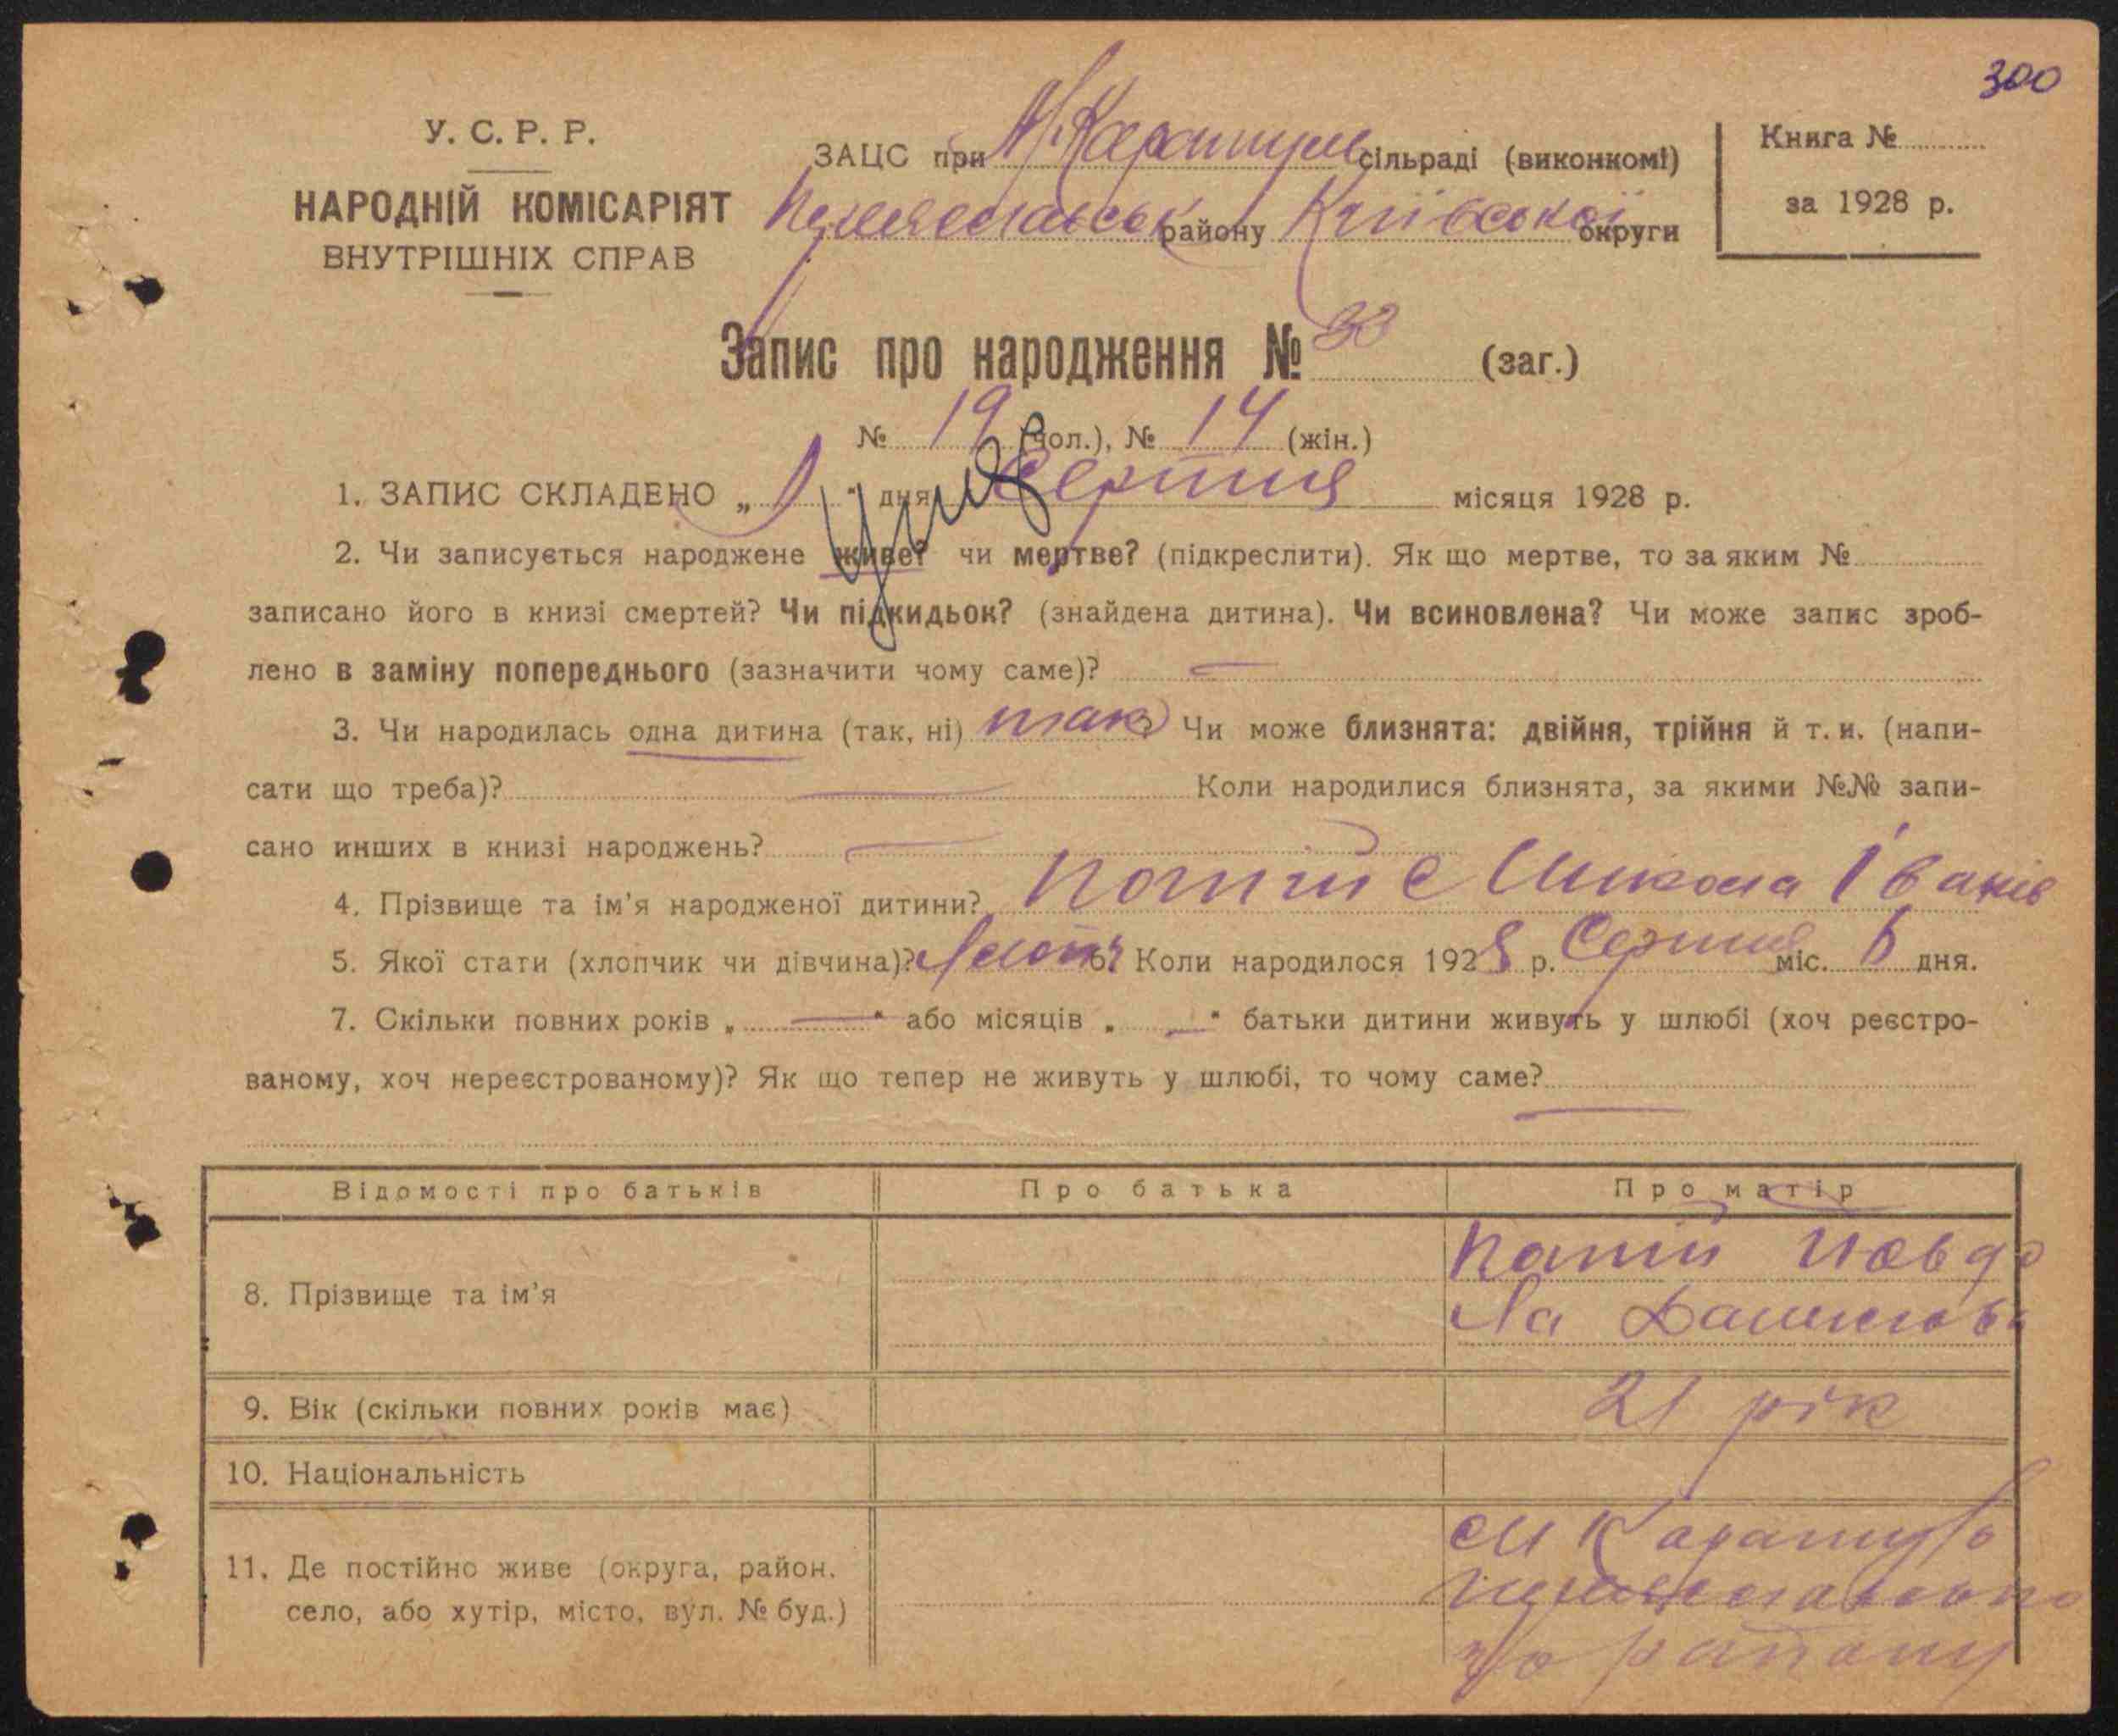 300
У. С. Р. Р.
НАРОДНІЙ КОМІСАРІЯТ
ВНУТРІШНІХ СПРАВ
ЗАЦС при М/Каратуль сільраді (виконкомі)
Переяславськ району Київської округи
Книга №
за 1928 р.
Запис про народження № 33 (заг.)
№ 19 (чол.), № 14 (жін.)
1. ЗАПИС СКЛАДЕНО „ " дня Серпня місяця 1928 р.
2. Чи записується народжене живе? чи мертве? (підкреслити). Як що мертве, то за яким №
записано його в книзі смертей? Чи підкидьок? (знайдена дитина). Чи всиновлена? Чи може запис зроб-
лено в заміну попереднього (зазначити чому саме)? —
3. Чи народилась одна дитина (так, ні) так Чи може близнята: двійня, трійня й т. и. (напи-
сати що треба)? — Коли народилися близнята, за якими №№ запи-
сано инших в книзі народжень? —
4. Прізвище та ім'я народженої дитини? Микола Іванів
5. Якої стати (хлопчик чи дівчина)? 6. Коли народилося 1928 р. Серпня міс. дня.
7. Скільки повних років „ — " або місяців „ — " батьки дитини живуть у шлюбі (хоч реєстро-
ваному, хоч нереєстрованому)? Як що тепер не живуть у шлюбі, то чому саме?
—
Відомості про батьків Про батька Про матір
8. Прізвище та ім'я
9. Вік (скільки повних років має) 21 рік
10. Національність
11. Де постійно живе (округа, район.
село, або хутір, місто, вул. № буд.)
М Каратуль
Переяславсько
го району